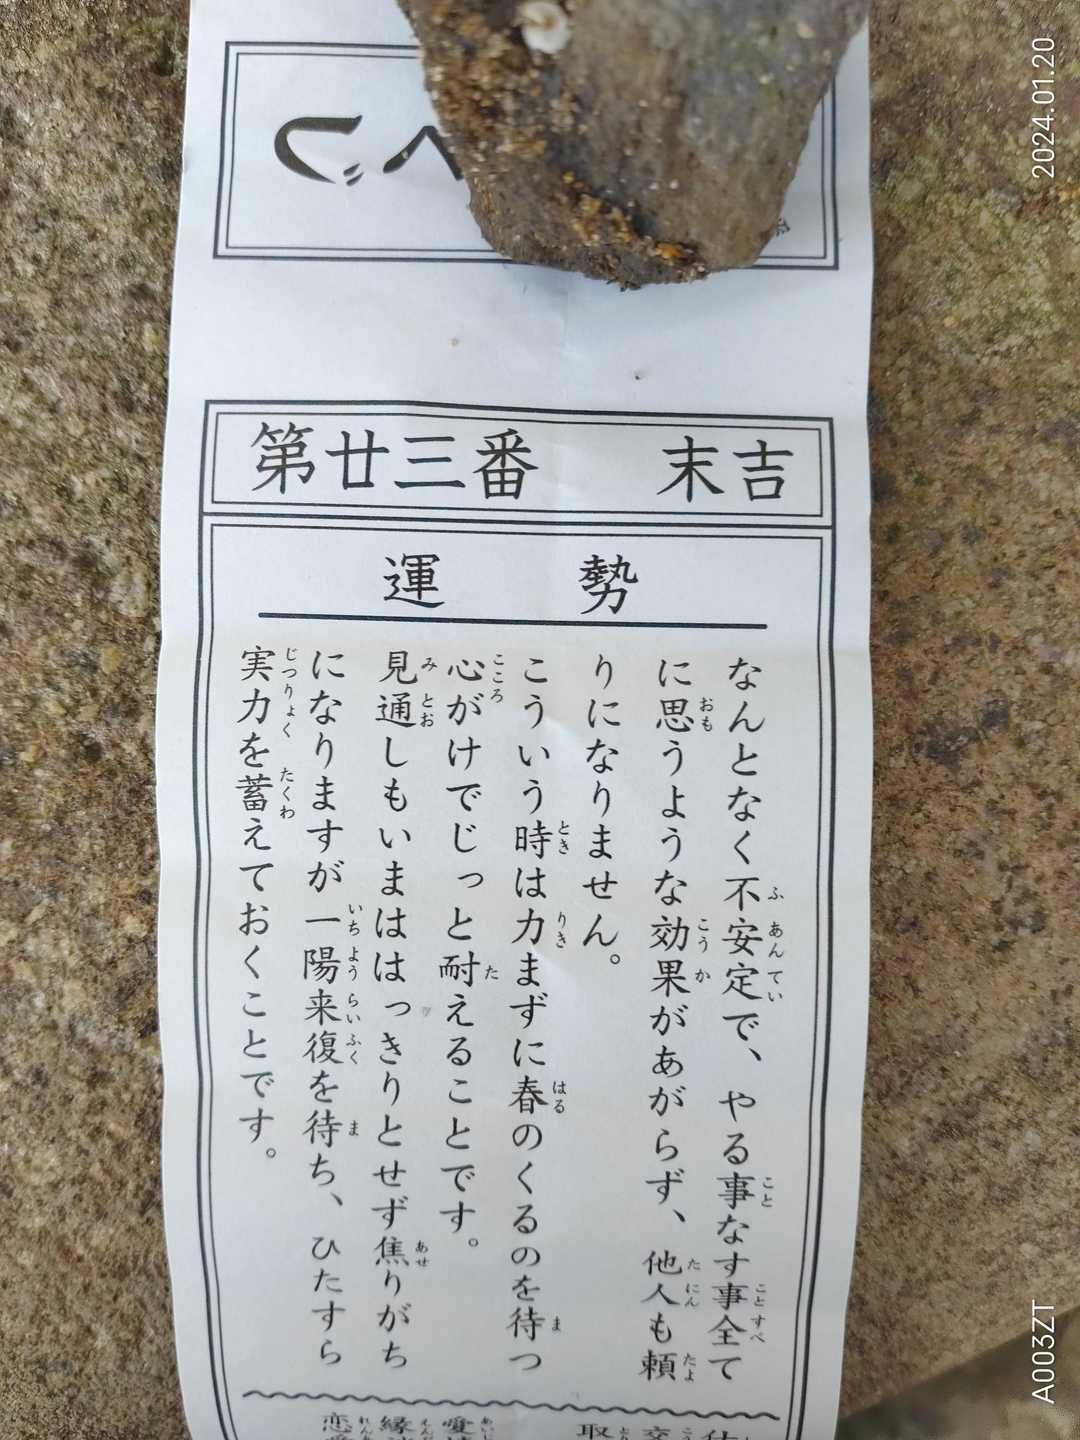 第廿三番　末吉
運勢
なんとなく不安定で、やる事なす事全て
に思うような効果があがらず、他人も頼
りになりません。
こういう時は力まずに春のくるのを待つ
心がけでじっと耐えることです。
見通しもいまははっきりとせず焦りがち
になりますが一陽来復を待ち、ひたすら
実力を蓄えておくことです。
2024.01.20
A003ZT